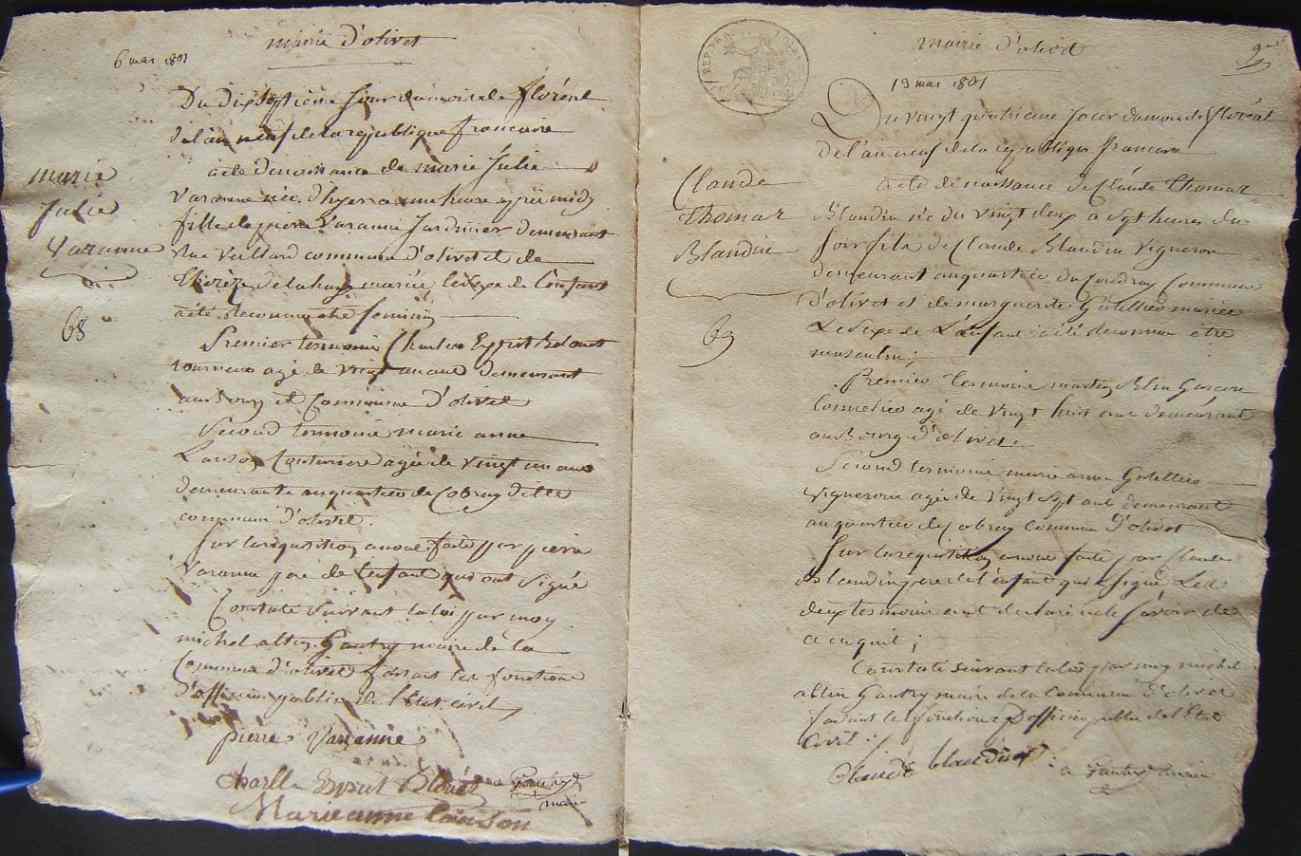 mairie d'olivet
6 mai 1801
Du Dixseptieme jour du mois de floréal
de l'an neuf de la republique francaise
acte de naissance de marie Julie
Varanne née d'hyerra une heure après midy
fille de pierre Varanne Jardinier demeurant
rue Veillard commune d'olivet et de
Thérèze Delahaye mariée le sexe de l'enfant
a été reconnu être feminin
marie
Julie
Varanne
68
Premier temoin Charles Esprit Blouet
tourneur agé de vingt un ans demeurant
au bourg et Commune d'olivet
Second temoin marie anne
Couturiere agée de vingt un ans
demeurante au quartier de Cobray ditte
commune d'olivet.
Sur la requisition a nous faite par pierre
Varanne pere de l'enfant qui ont signé
Constaté suivant la loi par moy
michel albin Gautry maire de la
Commune d'olivet faisant les fonctions
d'officier public de l'état civil
pierre Varanne
Charlle Esprit Blouet Gautry
maire
Marie anne
mairie d'olivet
13 mai 1801
Du vingt quatrieme jour du mois de floréal
de l'an neuf de la republique francaise
acte de naissance de Claude thomas
Blandin né du vingt deux a sept heures du
soir fils de Claude Blandin Vigneron
demeurant au quartier du Coudray Commune
d'olivet et de marguerite mariée
Le sexe de L'enfant a été reconnu être
masculin;
Claude
thomas
Blandin
69
Premier temoin martin Blin Garcon
agé de vingt huit ans demeurant
au bourg d'olivet
Second temoin marie anne
vigneronne agée de vingt sept ans demeurant
au quartier de Cobray commune d'olivet
Sur la requisition a nous faite par Claude
Blandin pere de l'enfant qui a signé Les
deux temoins ont declaré ne le savoir de
ce enquis;
Constaté suivant la loi par moy michel
albin Gautry maire de la Commune d'olivet
faisant les fonctions d'officier public de l'état
Civil
Claude blandin
Gautry maire